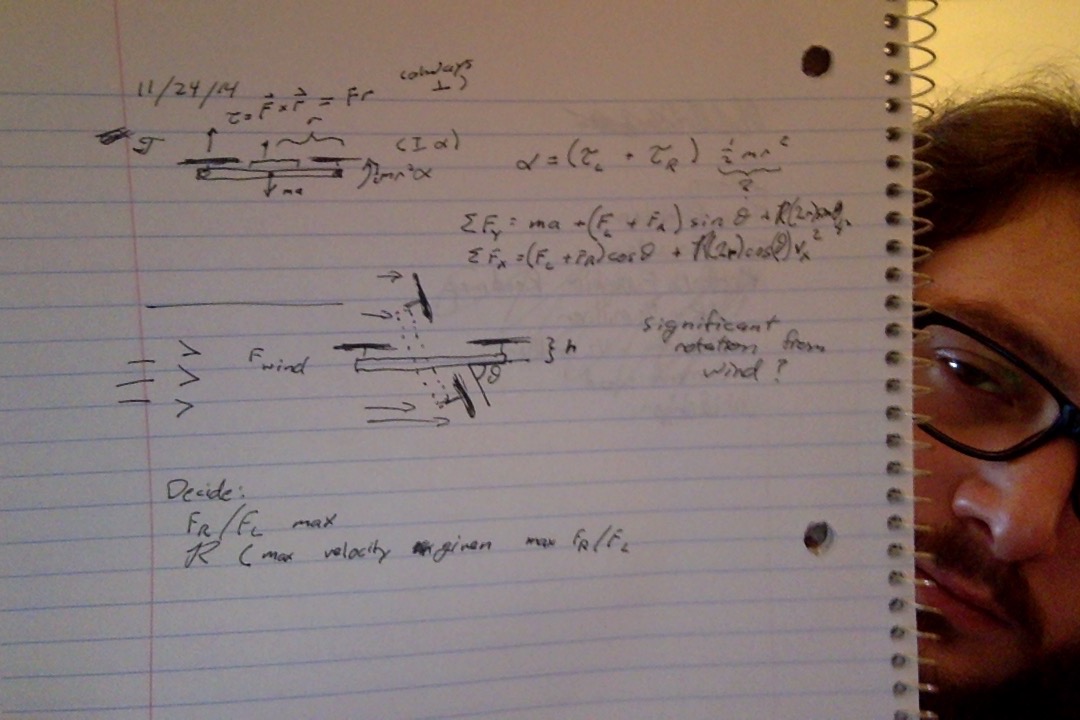 11/24/14
(always ⊥)
τ = F⃗ × r⃗ = Fr
r
(Iα)
½mr²α
ma
α = (τ_L + τ_R) ½mr²
?
ΣF_y = ma + (F_L + F_R) sin θ + R(2r)sin
ΣF_x = (F_L + F_R) cos θ + R(2r)cos(θ) v_x²
significant
rotation from
wind?
F_wind
} h
θ
Decide:
F_R/F_L max
R (max velocity given max F_R/F_L